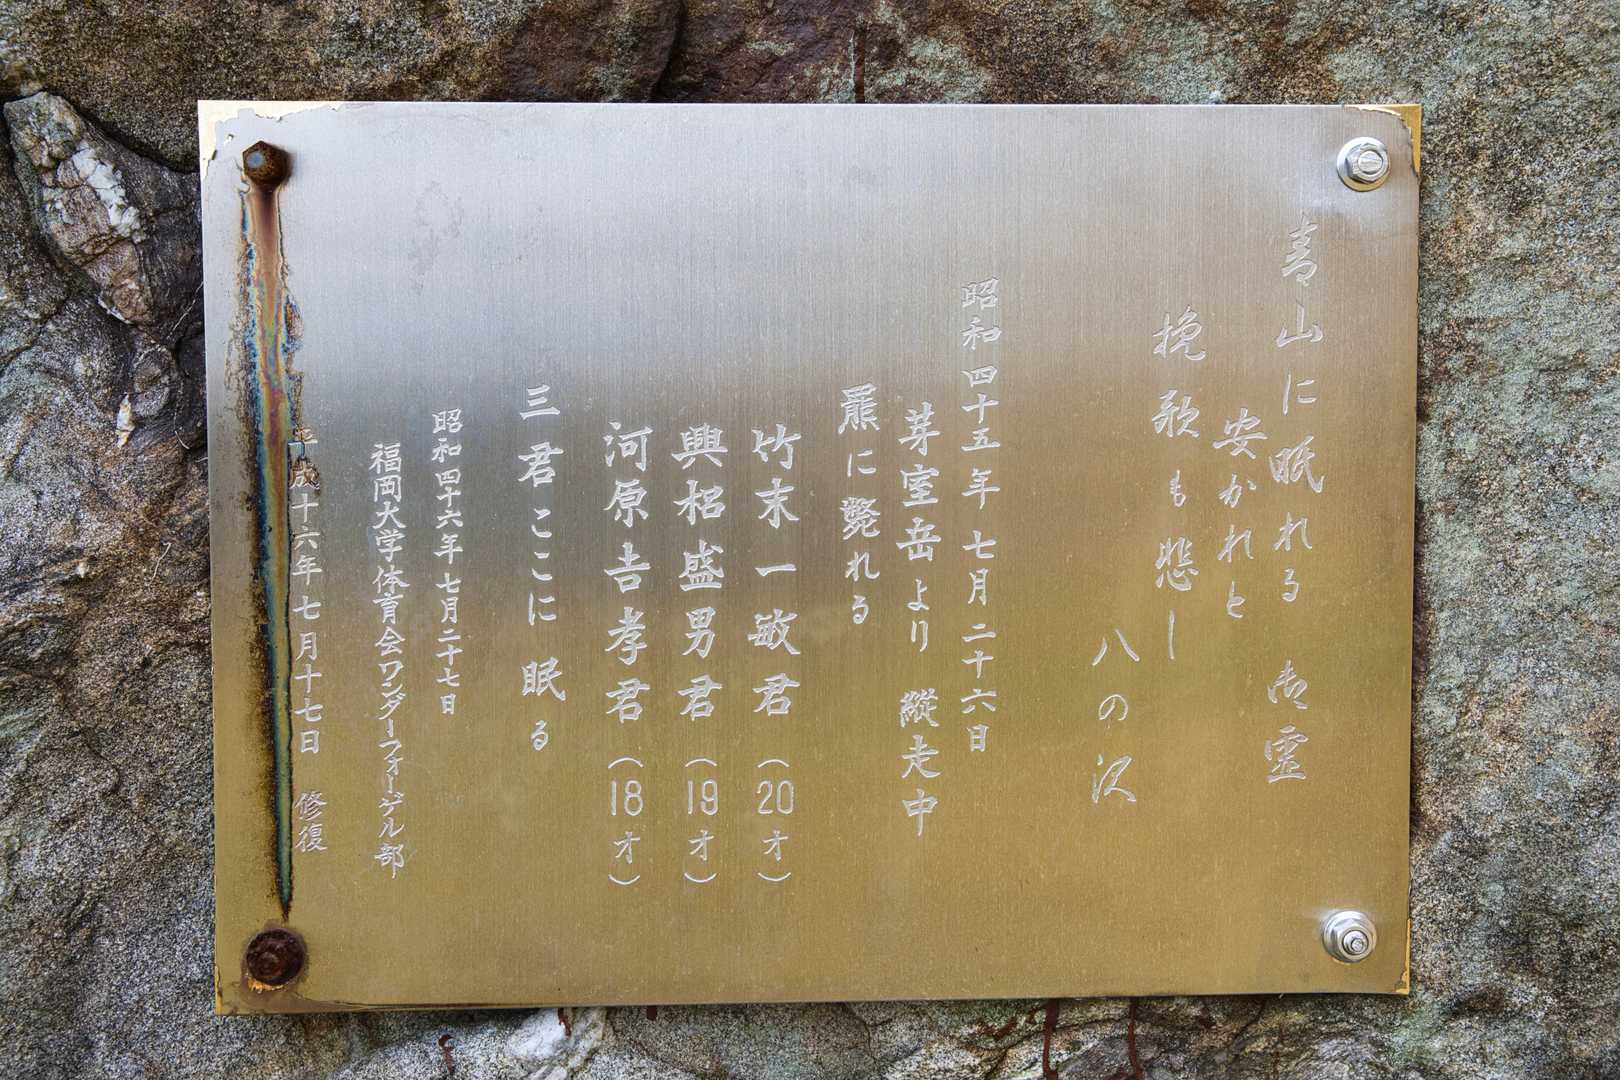 青山に眠れる 御霊
安かれと
挽歌も悲し
八の沢
昭和四十五年 七月 二十六日
芽室岳より 縦走中
羆に斃れる
竹末一敏君（20才）
興梠盛男君（19才）
河原吉孝君（18才）
三君ここに 眠る
昭和四十六年 七月二十七日
福岡大学体育会ワンダーフォーゲル部
平成十六年七月十七日 修復